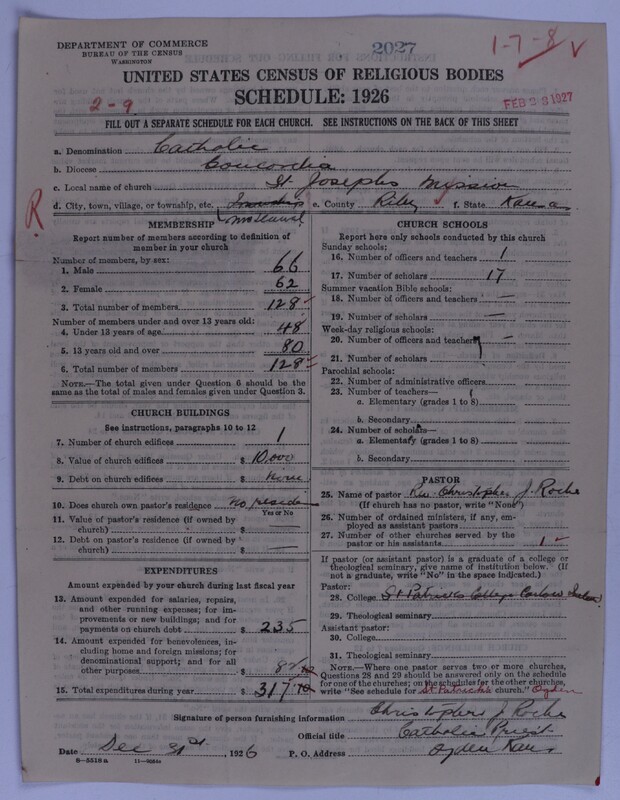 DEPARTMENT OF COMMERCE
BUREAU OF THE CENSUS
WASHINGTON
2027
1-7-8 V
UNITED STATES CENSUS OF RELIGIOUS BODIES
SCHEDULE: 1926
2-9
FEB 23 1927
FILL OUT A SEPARATE SCHEDULE FOR EACH CHURCH. SEE INSTRUCTIONS ON THE BACK OF THIS SHEET
a. Denomination Catholic
b. Diocese Concordia
c. Local name of church St Josephs Mission
d. City, town, village, or township, etc. Township e. County Riley f. State Kansas
R
MEMBERSHIP
Report number of members according to definition of
member in your church
Number of members, by sex:
1. Male 66
2. Female 62
3. Total number of members 128
Number of members under and over 13 years old:
4. Under 13 years of age 48
5. 13 years old and over 80
6. Total number of members 128
NOTE.—The total given under Question 6 should be
same as the total of males and females given under Question 3.
CHURCH BUILDINGS
See instructions, paragraphs 10 to 12
7. Number of church edifices 1
8. Value of church edifices $ 10,000
9. Debt on church edifices $ None
10. Does church own pastor's residence No reside
Yes or No
11. Value of pastor's residence (if owned by
church) $ —
12. Debt on pastor's residence (if owned by
church) $ —
EXPENDITURES
Amount expended by your church during last fiscal year
13. Amount expended for salaries, repairs,
and other running expenses; for im-
provements or new buildings; and for
payments on church debt $ 235
14. Amount expended for benevolences, in-
cluding home and foreign missions; for
denominational support; and for all
other purposes $ 82
15. Total expenditures during year $ 317
CHURCH SCHOOLS
Report here only schools conducted by this church
Sunday schools:
16. Number of officers and teachers 1
17. Number of scholars 17
Summer vacation Bible schools:
18. Number of officers and teachers —
19. Number of scholars —
Week-day religious schools:
20. Number of officers and teachers —
21. Number of scholars
Parochial schools:
22. Number of administrative officers
23. Number of teachers—
a. Elementary (grades 1 to 8)
b. Secondary
24. Number of scholars—
a. Elementary (grades 1 to 8)
b. Secondary
PASTOR
25. Name of pastor Rev Christopher J. Roche
(If church has no pastor, write "None")
26. Number of ordained ministers, if any, em-
ployed as assistant pastors —
27. Number of other churches served by the
pastor or his assistants 1
If pastor (or assistant pastor) is a graduate of a college or
theological seminary, give name of institution below. (If
not a graduate, write "No" in the space indicated.)
Pastor:
28. College St Patricks College Carlow Ireland
29. Theological seminary
Assistant pastor:
30. College
31. Theological seminary
NOTE.—Where one pastor serves two or more churches,
Questions 28 and 29 should be answered only on the schedule
for one of the churches; on the schedules for the other churches,
write "See schedule for St Patricks church." Ogden
Signature of person furnishing information Christopher J Roche
Official title Catholic Priest
Date Dec 31st, 1926 P. O. Address Ogden Kans
8—5519 a 11—9084a